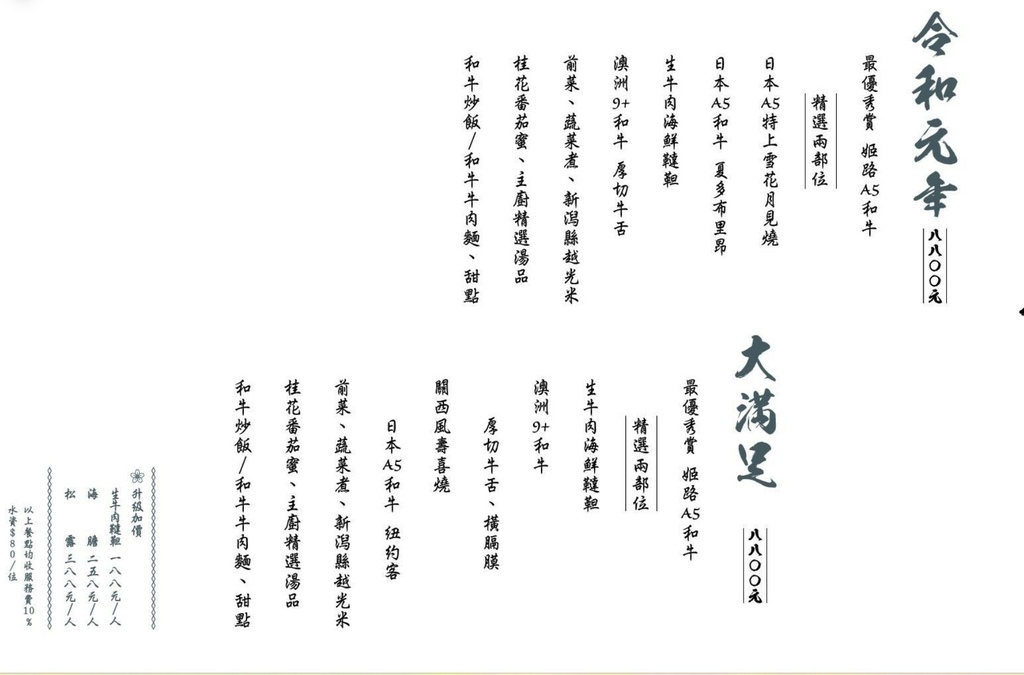 令和元年 八八〇〇元
最優秀賞 姬路A5和牛
精選兩部位
日本A5特上雪花月見燒
日本A5和牛 夏多布里昂
生牛肉海鮮韃靼
澳洲9+和牛 厚切牛舌
前菜、蔬菜煮、新潟縣越光米
桂花番茄蜜、主廚精選湯品
和牛炒飯/和牛牛肉麵、甜點
大滿足 八八〇〇元
最優秀賞 姬路A5和牛
精選兩部位
生牛肉海鮮韃靼
澳洲9+和牛
厚切牛舌、橫膈膜
關西風壽喜燒
日本A5和牛 紐約客
前菜、蔬菜煮、新潟縣越光米
桂花番茄蜜、主廚精選湯品
和牛炒飯/和牛牛肉麵、甜點
升級加價
生牛肉韃靼 一八八元/人
海膽 二五八元/人
松露 三八八元/人
以上餐點均收服務費10%
水資$80/位